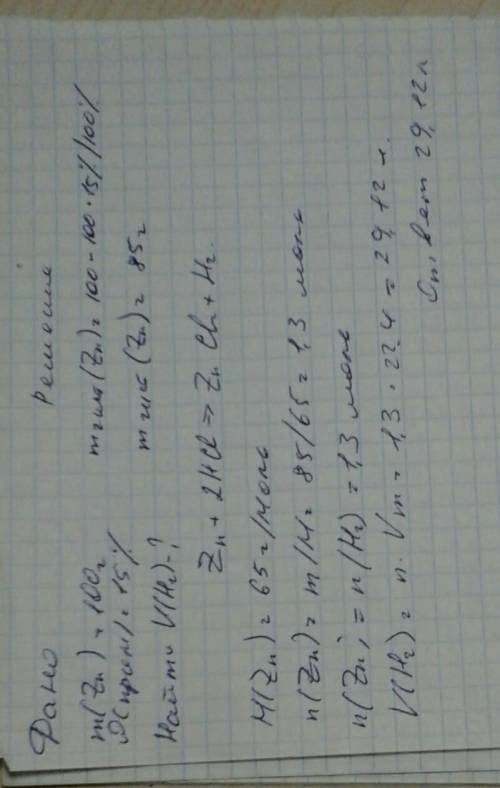 Дано
m(Zn) = 100г
Я(прим) = 15%
Найти V(H2)-?
Решение
m чист (Zn) = 100 - 100 · 15% / 100%
m чист (Zn) = 85г
Zn + 2HCl => ZnCl2 + H2.
M(Zn) = 65г/моль
n(Zn) = m/M = 85/65 = 1,3 моль
n(Zn) = n(H2) = 1,3 моль
V(H2) = n · Vm = 1,3 · 22.4 = 29,12 л.
Ответ 29,12л